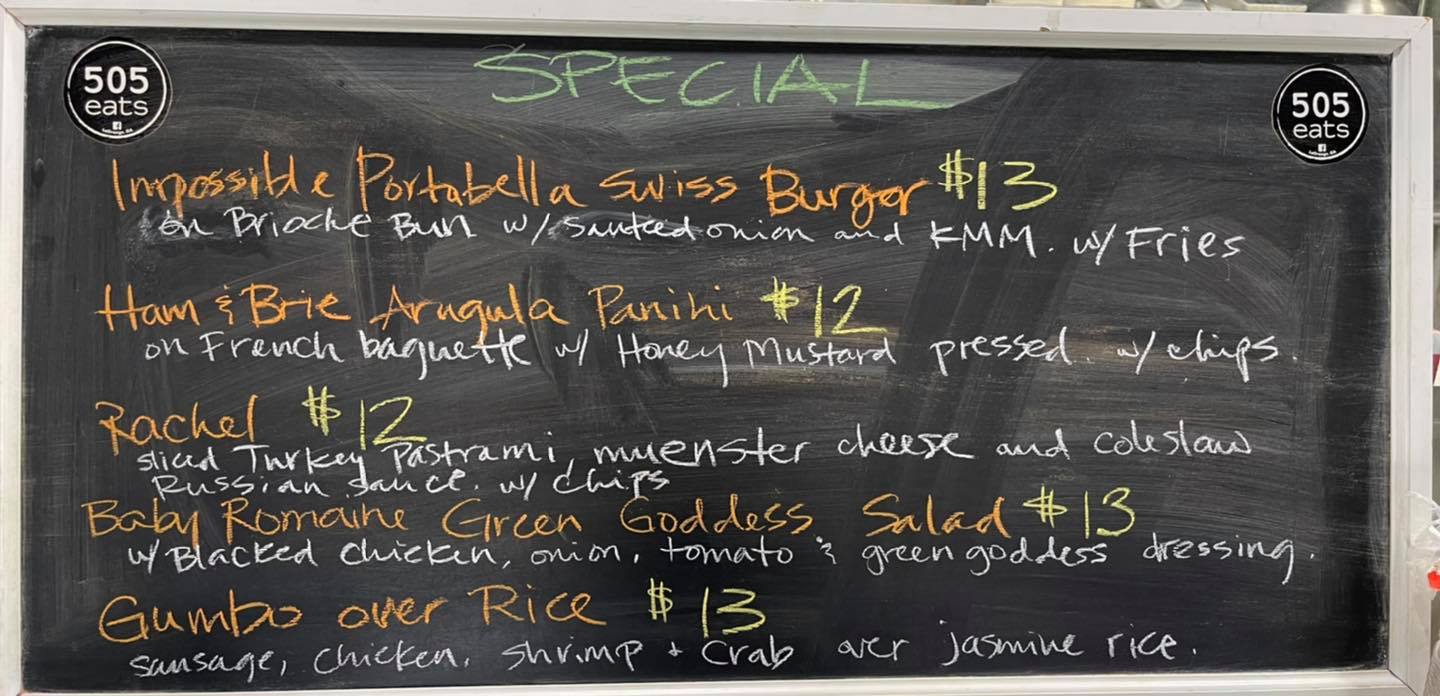 505
eats
SPECIAL
505
eats
Impossible Portabella Swiss Burger $13
on Brioche Bun w/ Sauteed onion and KMM. w/ Fries
Ham & Brie Arugula Panini $12
on French baguette w/ Honey Mustard pressed. w/ chips.
Rachel $12
sliced Turkey Pastrami, muenster cheese and coleslaw
Russian sauce. w/ chips
Baby Romaine Green Goddess Salad $13
w/ Blacked chicken, onion, tomato & green goddess dressing.
Gumbo over Rice $13
sausage, chicken, shrimp + Crab over jasmine rice.